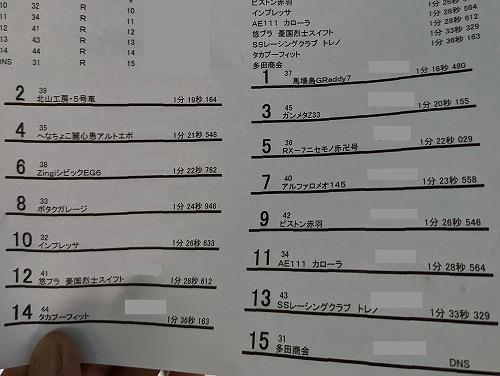 10 32 R 9
11 34 R
12 41 R
13 44 R
14 43 R 14
DNS 31 R 15
ピストン赤羽
インプレッサ 1分 26秒 633
AE111 カローラ 1分 28秒 564
悠プラ 憂国烈士スイフト 1分 28秒 612
SSレーシングクラブ トレノ 1分 33秒 329
タカブーフィット 1分 36秒 163
多田商会
1 37 馬場島GReddy7 1分 16秒 480
2 39 北山工房・5号車 1分 19秒 164
3 45 ガンメタZ33 1分 20秒 155
4 35 へなちょこ麗心愚アルトエボ 1分 21秒 548
5 36 RX-7ニセモノ赤卍号 1分 22秒 029
6 38 ZingiシビックEG6 1分 22秒 762
7 40 アルファロメオ145 1分 23秒 558
8 33 ボタクガレージ 1分 24秒 946
9 42 ピストン赤羽 1分 26秒 546
10 32 インプレッサ 1分 26秒 633
11 34 AE111 カローラ 1分 28秒 564
12 41 悠プラ 憂国烈士スイフト 1分 28秒 612
13 43 SSレーシングクラブ トレノ 1分 33秒 329
14 44 タカブーフィット 1分 36秒 163
15 31 多田商会 DNS